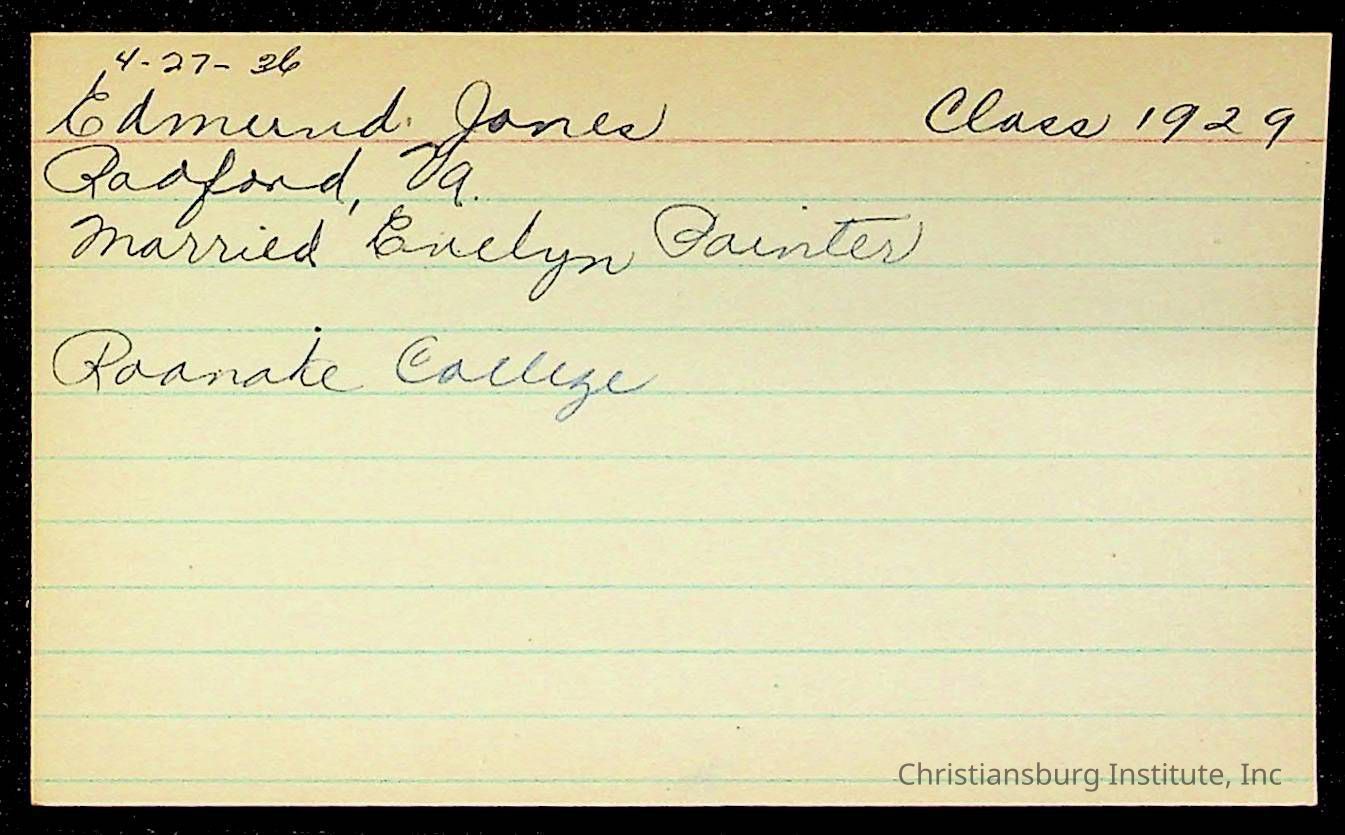 4-27-36
Edmund Jones Class 1929
Radford, Va.
Married Evelyn Painter
Roanoke College
Christiansburg Institute, Inc